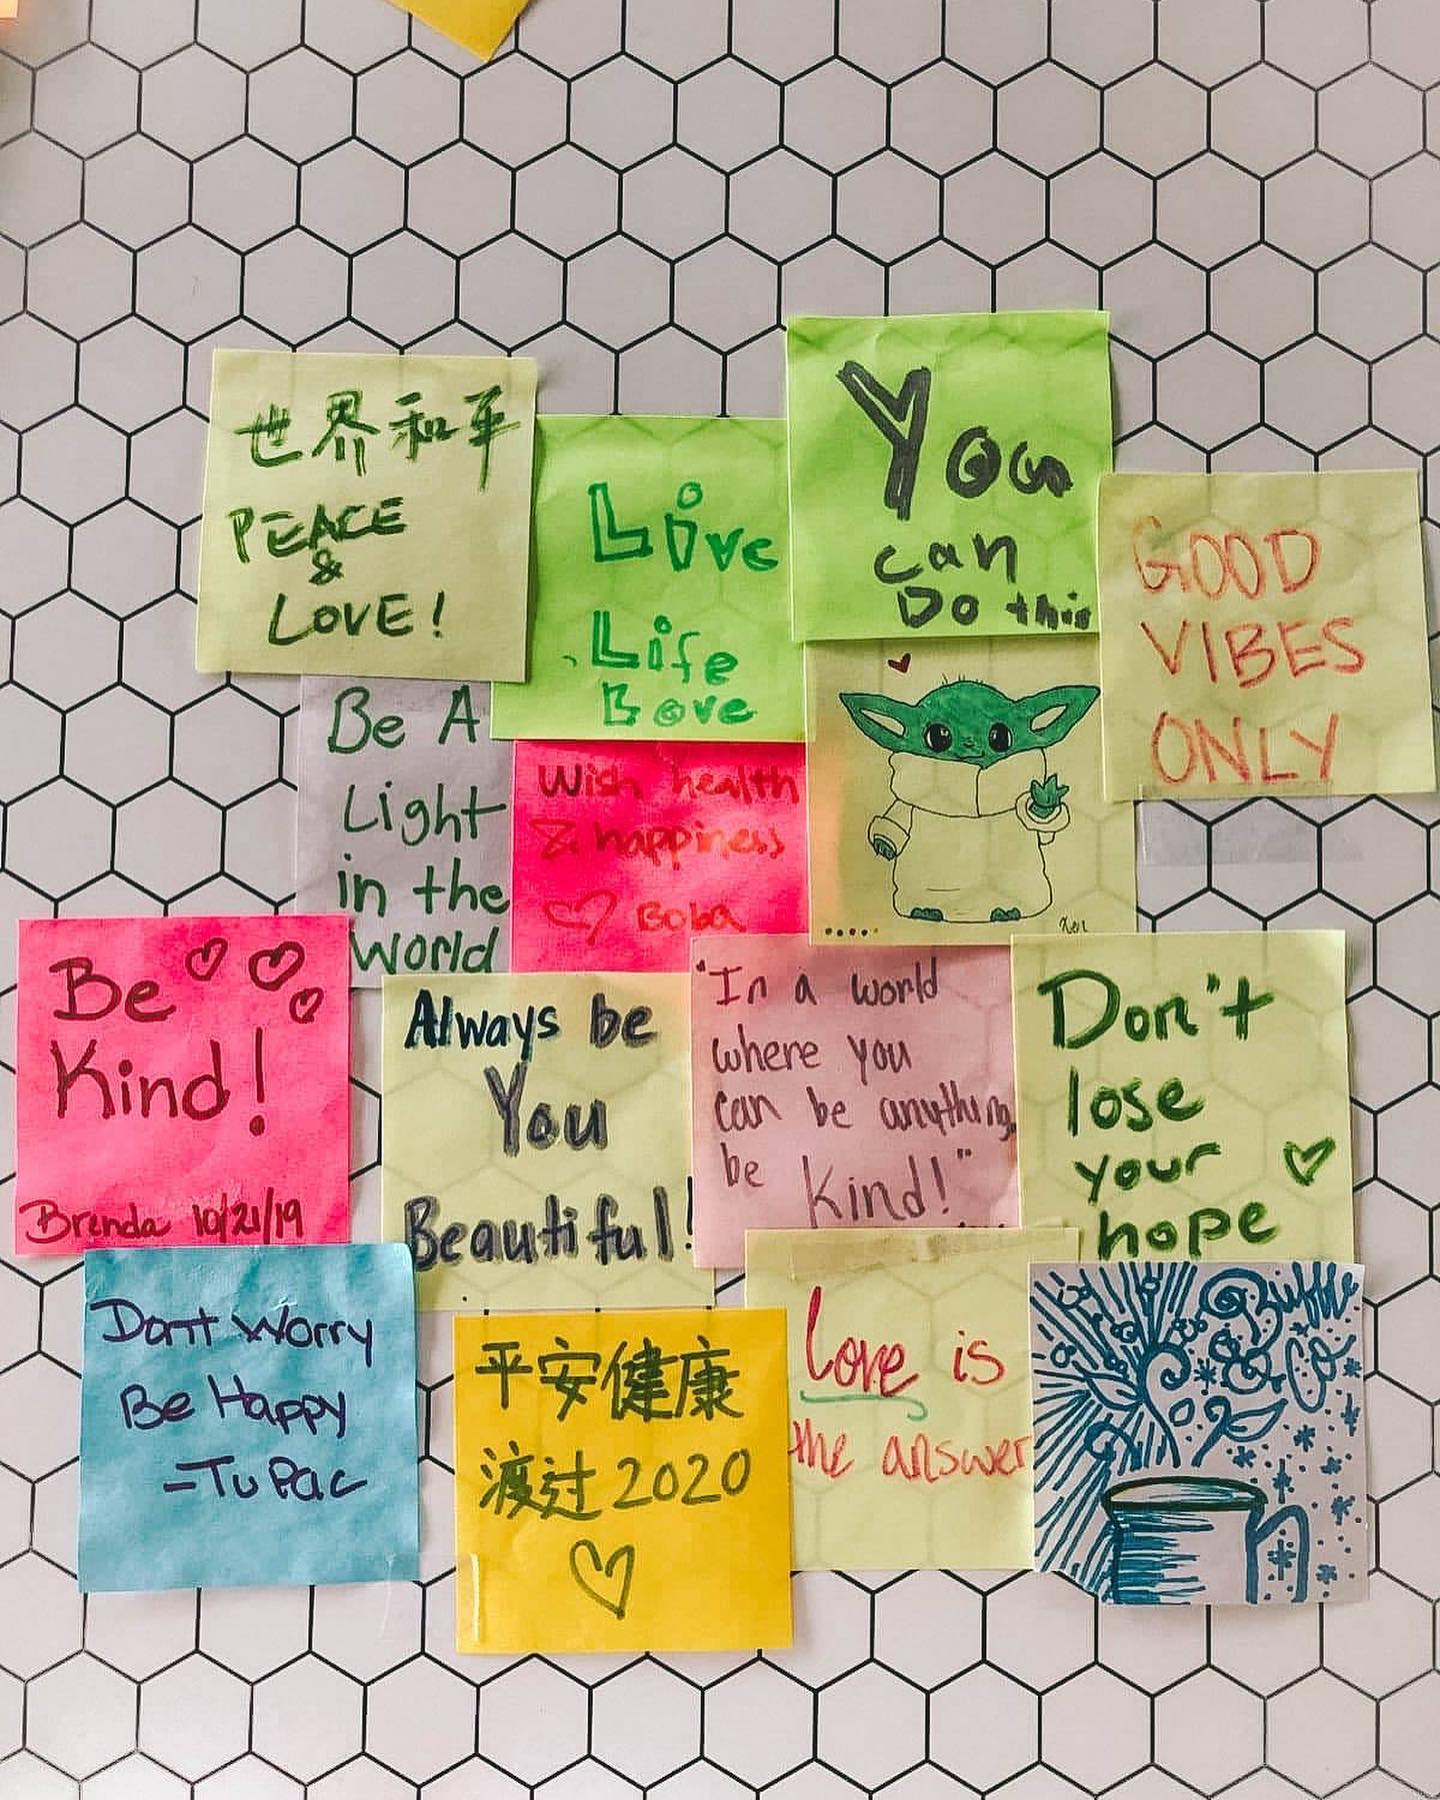 世界和平
PEACE
&
LOVE!
Live
Life
Love
You
can
Do this
GOOD
VIBES
ONLY
Be A
Light
in the
World
Wish health
& happiness
Boba
Be
Kind!
Brenda 10/21/19
Always be
You
Beautiful!
"In a world
where you
can be anything,
be Kind!"
Don't
lose
your
hope
Dont Worry
Be Happy
-TuPac
平安健康
渡过2020
Love is
the answer
& Co